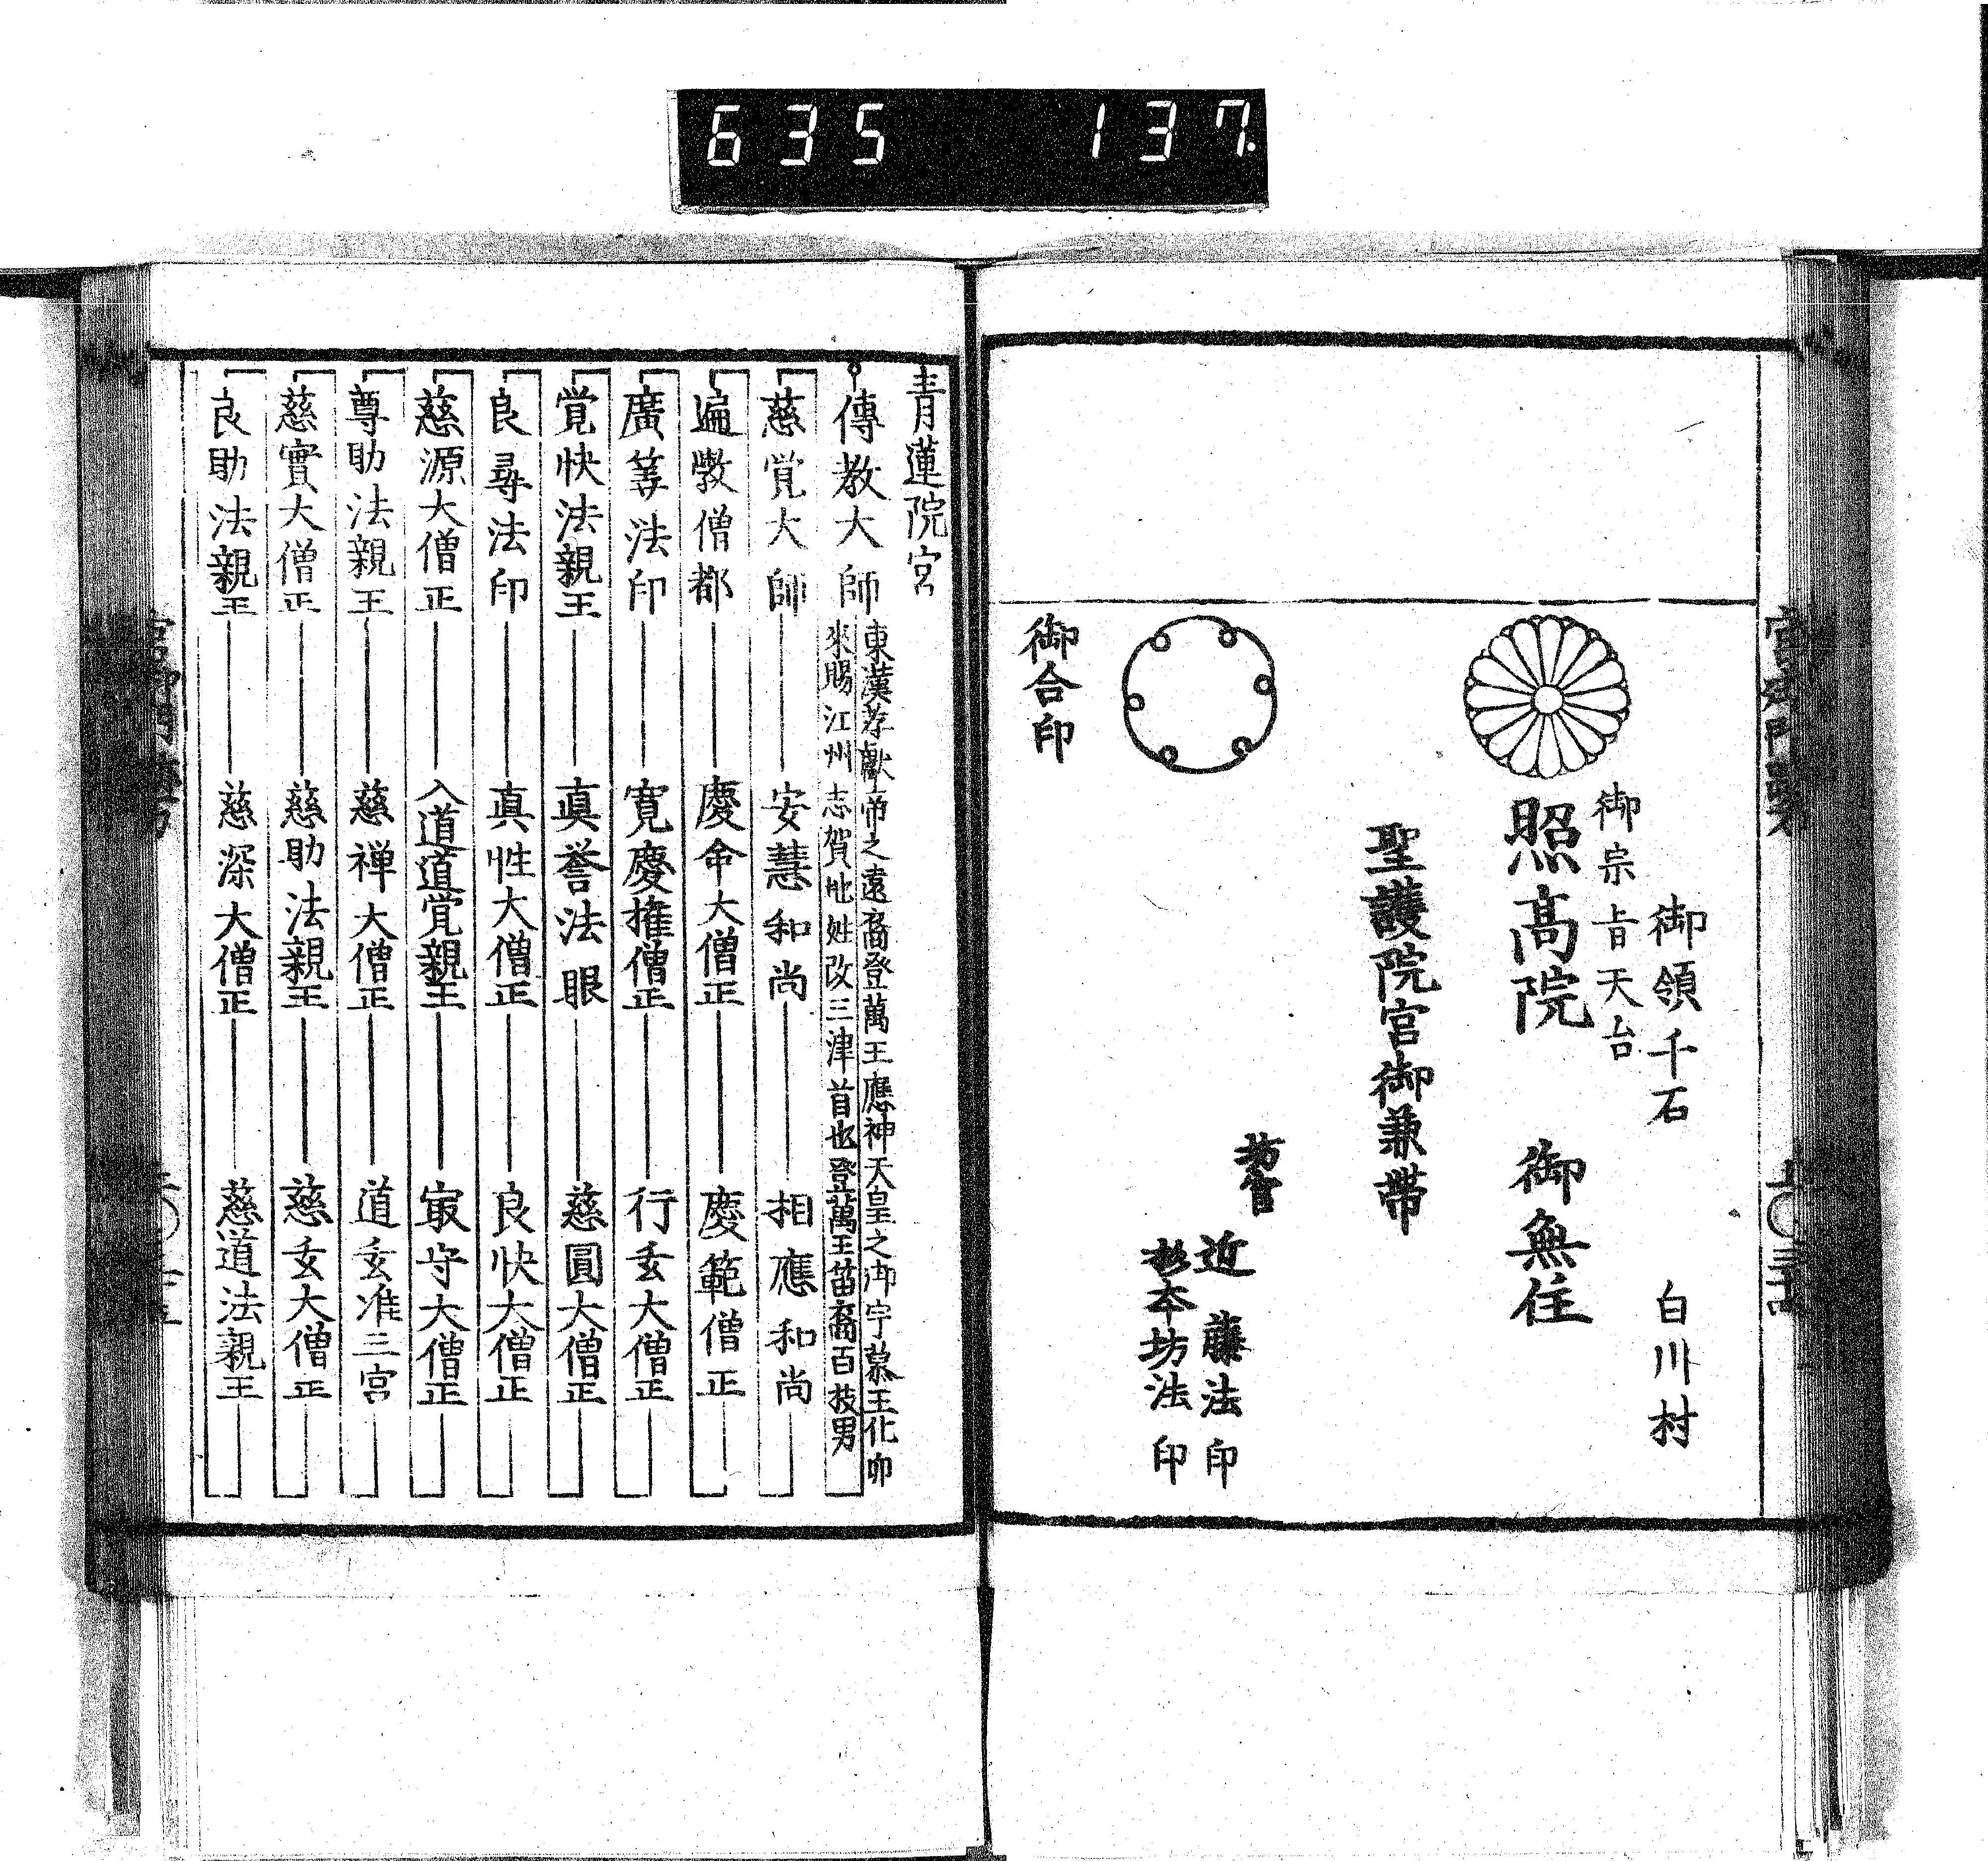 635 137
御領千石 白川村
御宗旨天台
照高院 御無住
聖護院宮御兼帯
坊官
近藤法印
杉本坊法印
御合印
青蓮院宮
傳教大師
東漢孝獻帝之遠裔登萬王應神天皇之御宇慕王化
來賜江州志賀地姓改三津首也登萬王苗裔百枝男
慈覚大師 安慧和尚 相應和尚
遍斆僧都 慶命大僧正 慶範僧正
廣筭法印 寛慶権僧正 行玄大僧正
覚快法親王 眞誉法眼 慈圓大僧正
良尋法印 真性大僧正 良快大僧正
慈源大僧正 入道道覚親王 冣守大僧正
尊助法親王 慈禅大僧正 道玄准三宮
慈實大僧正 慈助法親王 慈玄大僧正
良助法親王 慈深大僧正 慈道法親王